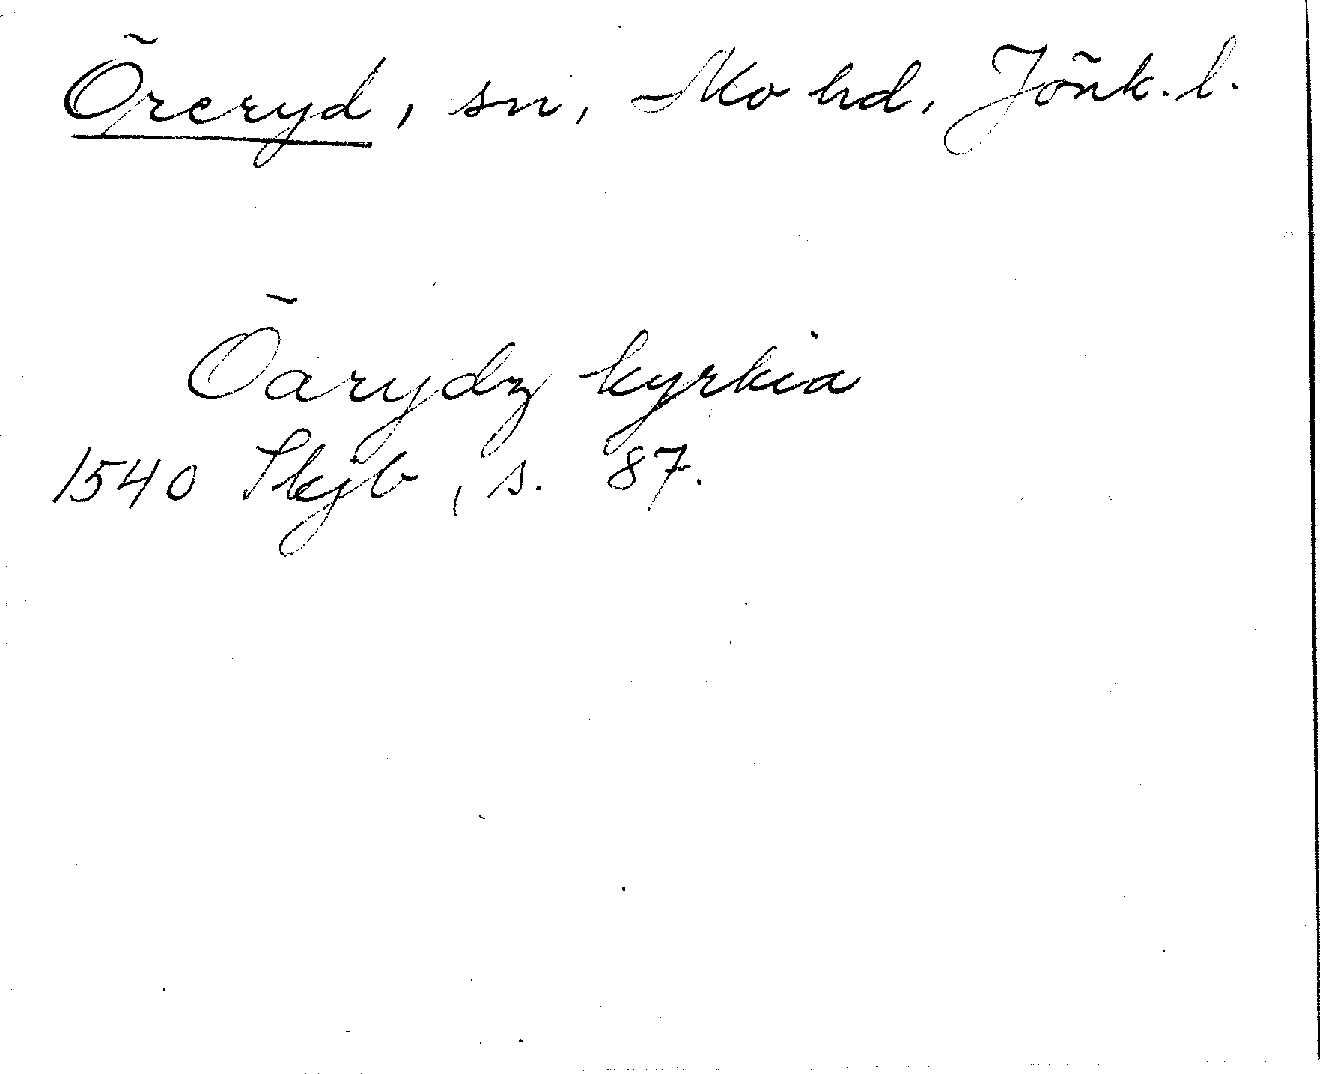 Öreryd, sn, Mo hd, Jönk. l.
Öarydz kyrkia
1540 Skjb, s. 87.